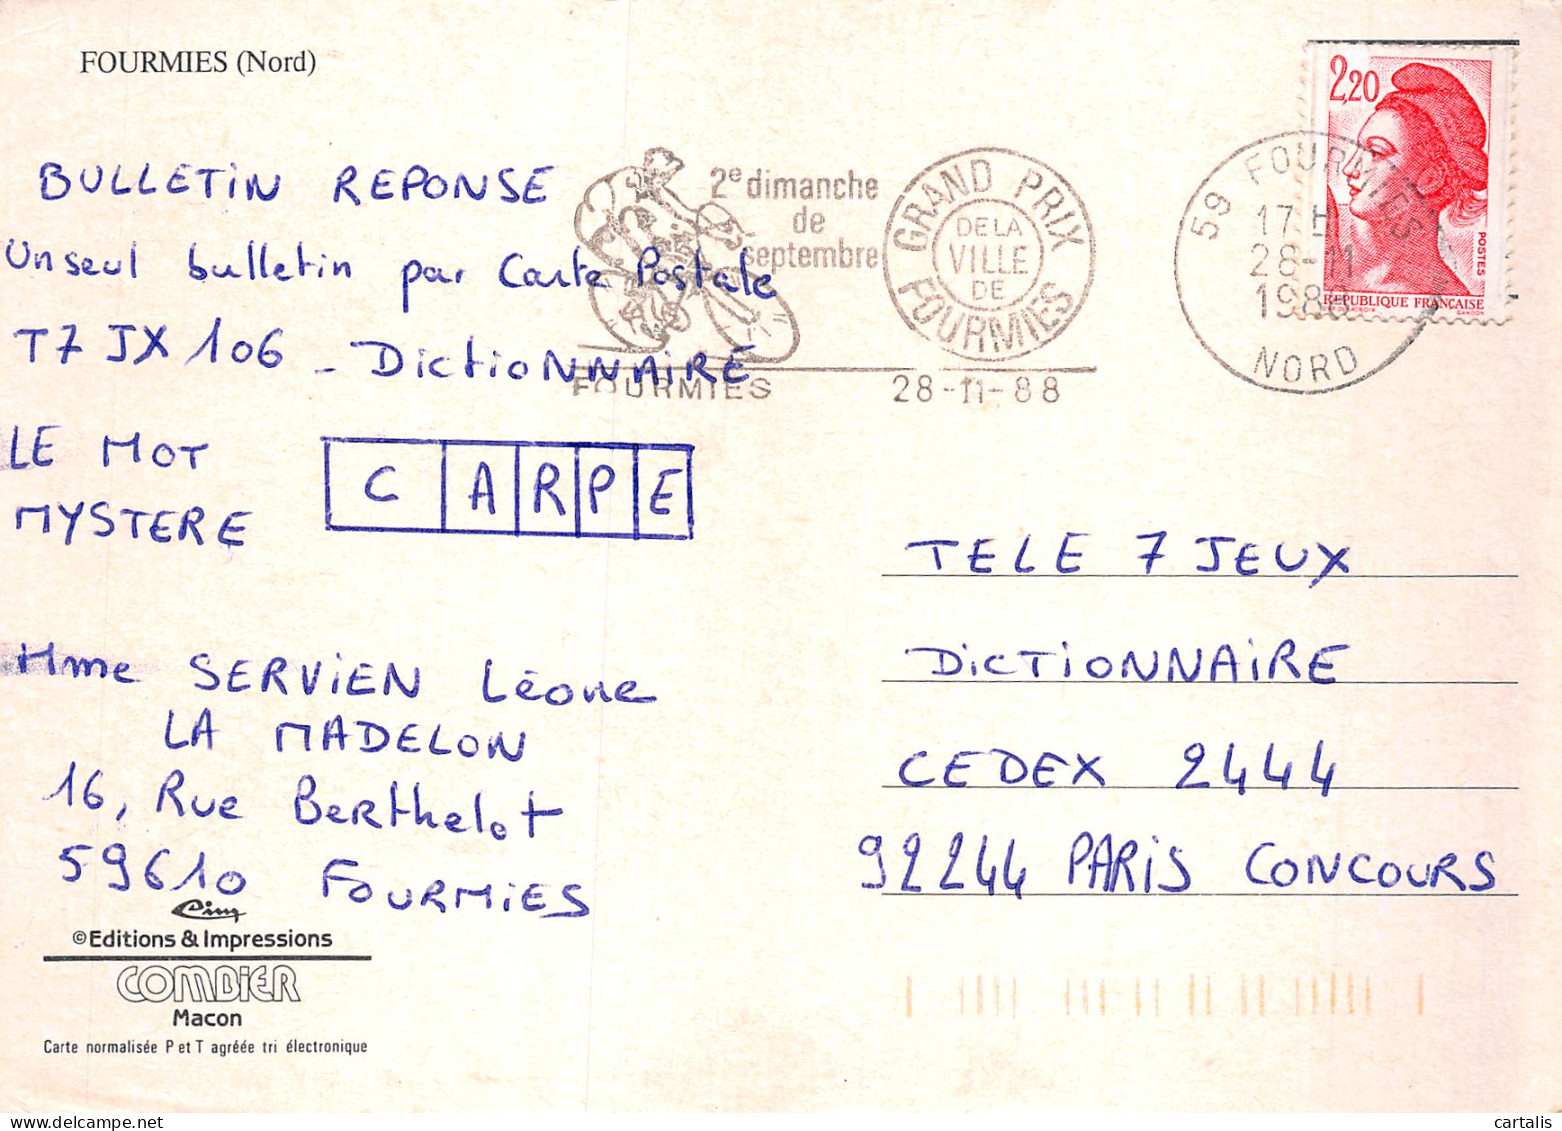 FOURMIES (Nord)
2,20
POSTES
REPUBLIQUE FRANÇAISE
GANDON
2e dimanche
de
septembre
GRAND PRIX
DE LA
VILLE
DE
FOURMIES
FOURMIES
28-11-88
59 FOURMIES
17 H
28-11
1988
NORD
BULLETiN REPONSE
Un seul bulletin par Carte Postale
T7 JX 106 - DictioNNAiRE
LE MOT
MYSTERE
C A R P E
Mme SERViEN Léone
LA MADELON
16, Rue BERthelot
59610 FOURMiES
TELE 7 JEUX
DiCTiONNAiRE
CEDEX 2444
92244 PARiS CONCOURS
Cim
©Editions & Impressions
COMBIER
Macon
Carte normalisée P et T agréée tri électronique
cartalis